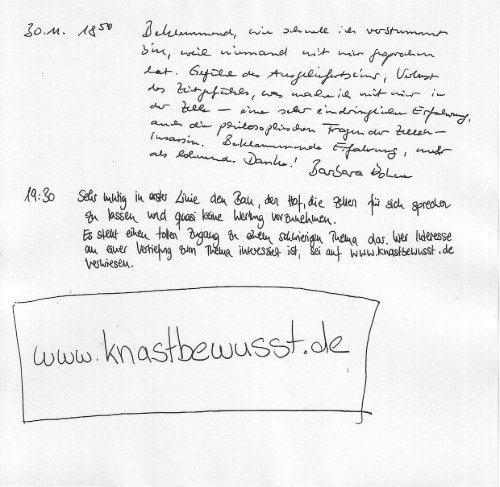 30.11. 18⁵⁰ Beklemmend, wie schnell ich verstummt
bin, weil niemand mit mir gesprochen
hat. Gefühle des Ausgeliefertseins, Verlust
des Zeitgefühles, was mache ich mit mir in
der Zelle – eine sehr eindringliche Erfahrung,
auch die philosophischen Fragen der Zellen-
insassin. Beklemmende Erfahrung, mehr
als lohnend. Danke! Barbara
19:30 Sehr mutig in erster Linie den Bau, den Hof, die Zellen für sich sprechen
zu lassen und quasi keine Wertung vorzunehmen.
Es stellt einen tollen Zugang zu einem schwierigen Thema das. Wer Interesse
an einer Vertiefung zum Thema interessiert ist, sei auf www.knastbewusst.de
verwiesen.
www.knastbewusst.de